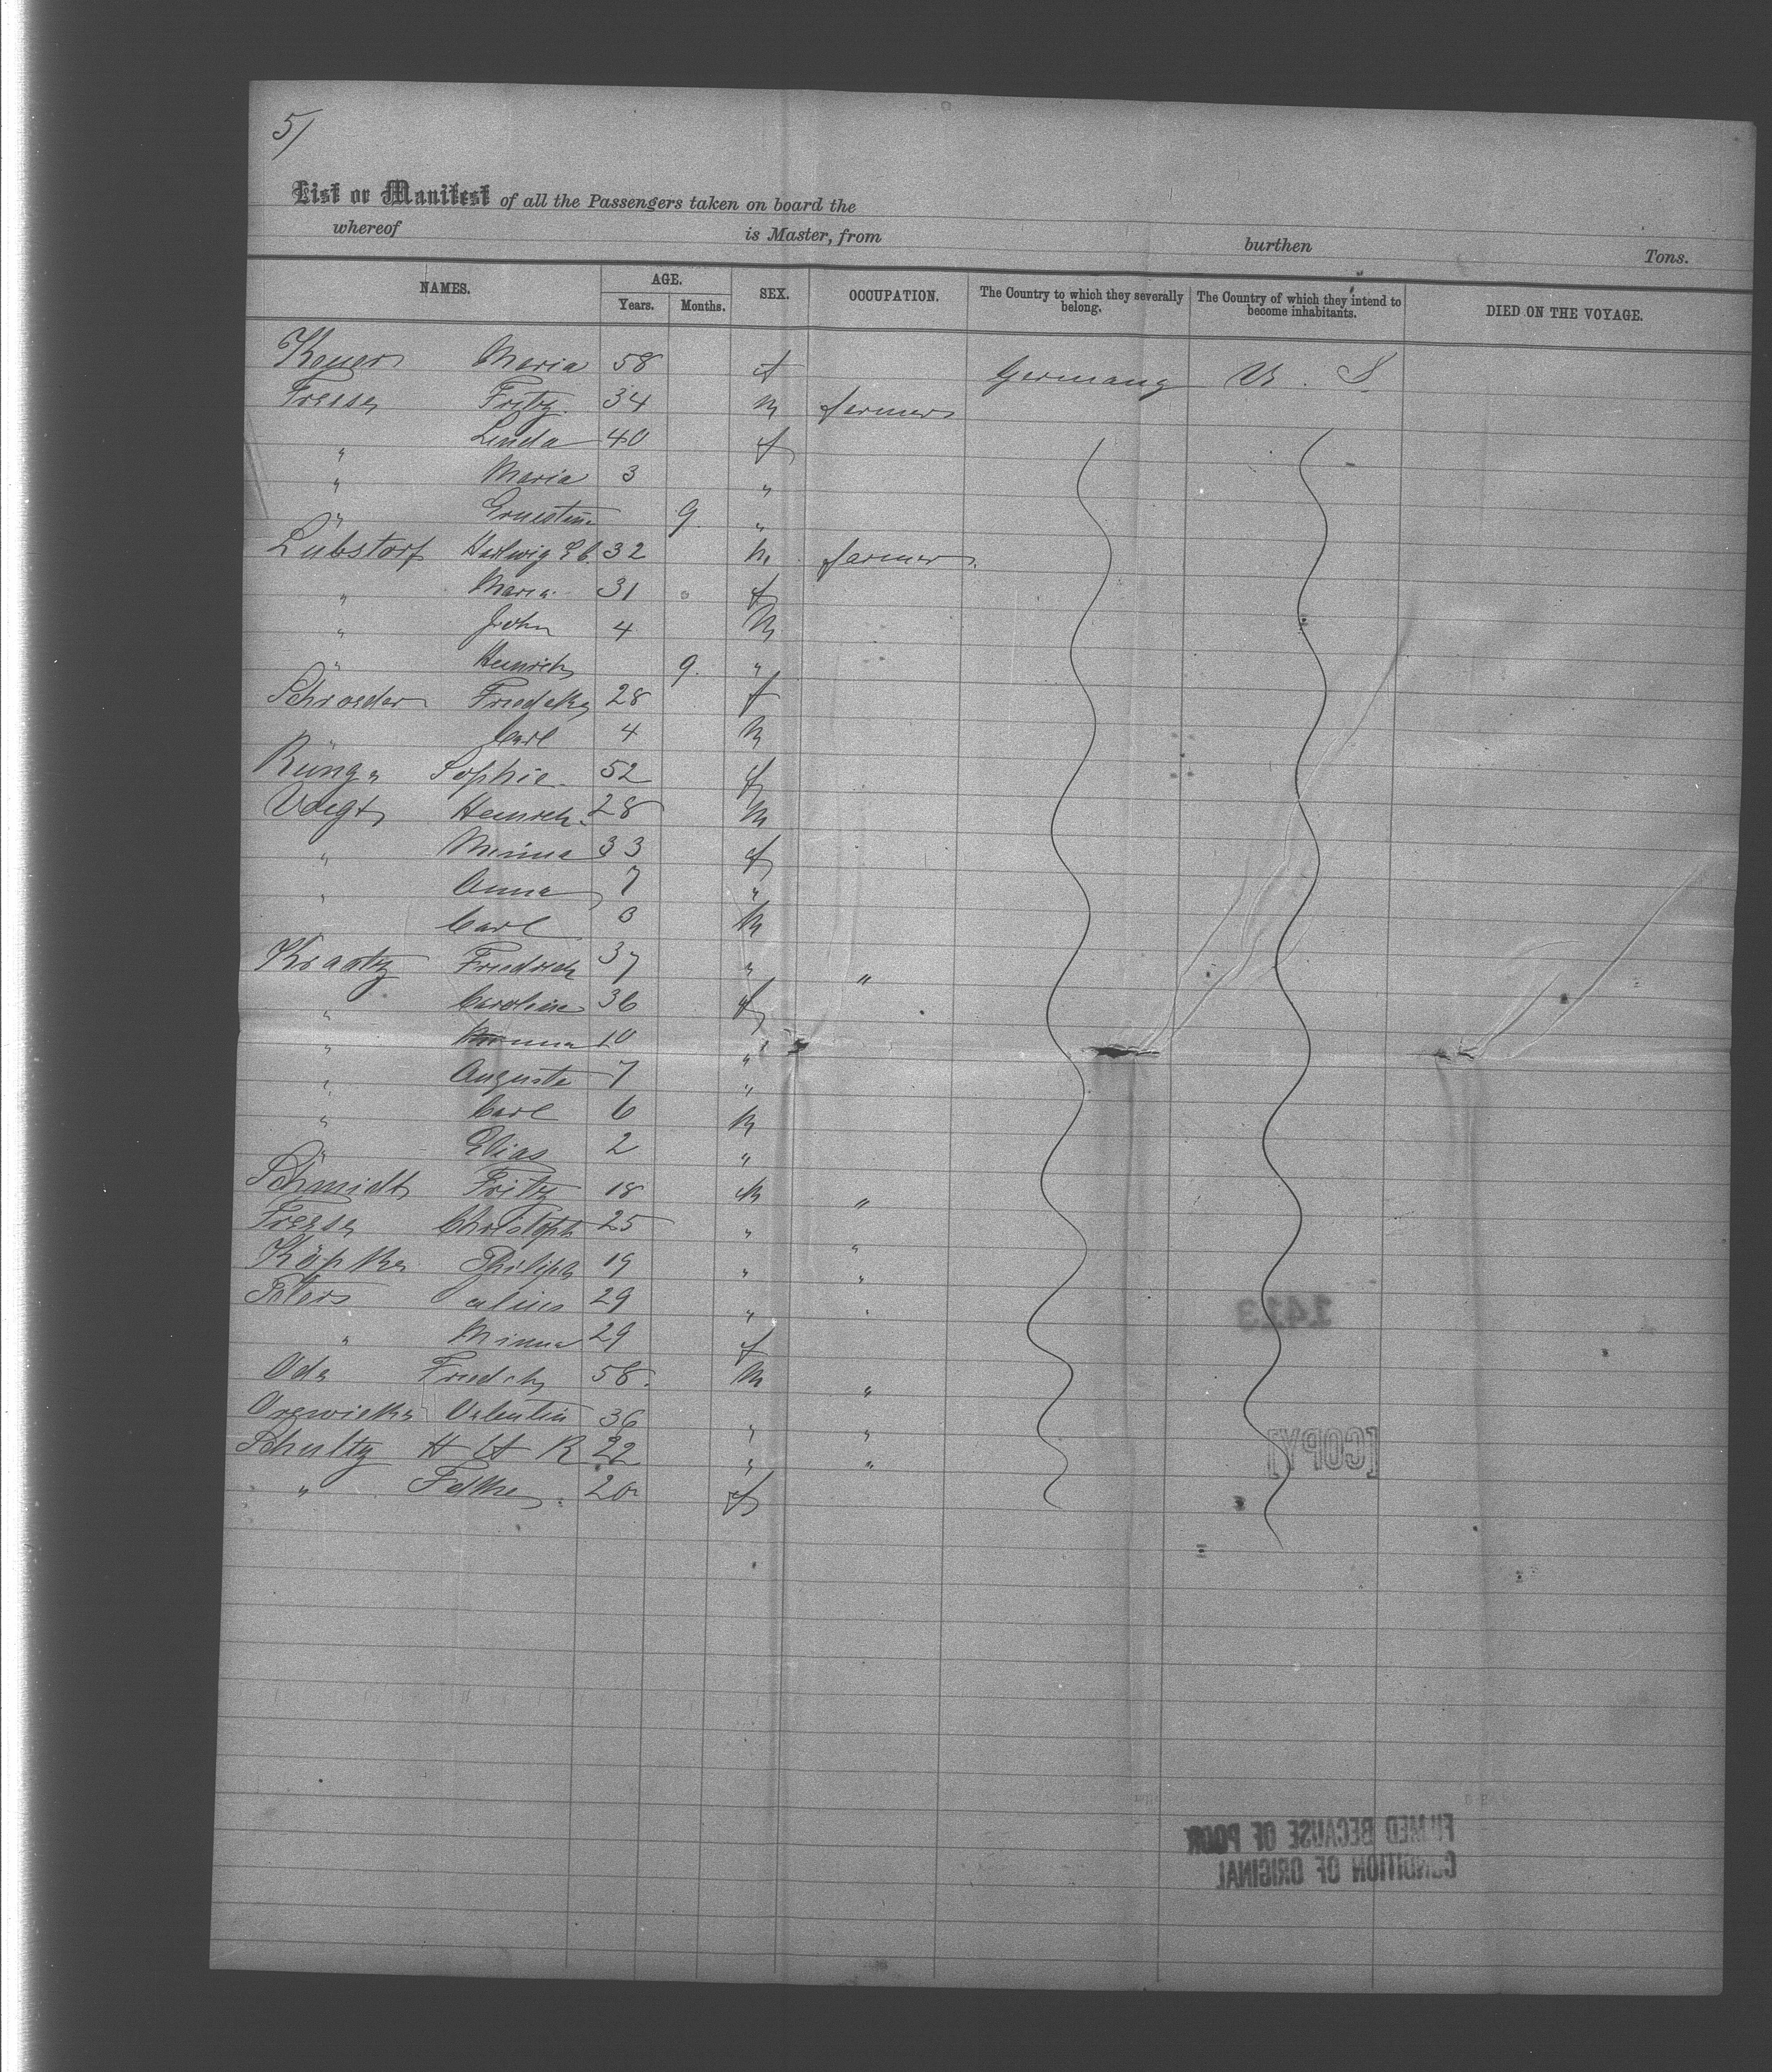 5/
List or Manifest of all the Passengers taken on board the
whereof is Master, from burthen Tons.
NAMES. AGE. Years. Months. SEX. OCCUPATION. The Country to which they severally belong. The Country of which they intend to become inhabitants. DIED ON THE VOYAGE.
Maria 58 f Germany U. S
Freese Fritz 34 M farmer
" Linda 40 f
" Maria 3 "
" Ernestine 9 "
Lübstorf 32 M farmer
" Maria 31 f
" John 4 M
" Heinrich 9 "
Schroeder 28 f
Carl 4 M
Runge Sophie 52 f
Voigt Heinrich 28 M
" Minna 33 f
" Anna 7 "
Carl 3 M
Kraatz Friedrich 37 " "
" Caroline 36 f
" 10 "
" Auguste 7 "
" Carl 6 M
" Elias 2 "
Schmidt Fritz 18 M "
Freese Christoph 25 " "
Köpke Philipp 19 " "
29 " "
" Minna 29 f
Ode Friedch 58 M "
Valentin 36 " "
Schultz H 22 " "
" 20 f
1413
[COPY]
FILMED BECAUSE OF POOR
CONDITION OF ORIGINAL